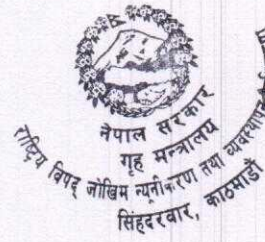 नेपाल सरकार
गृह मन्त्रालय
राष्ट्रिय विपद् जोखिम न्यूनीकरण तथा व्यवस्थापन
सिंहदरवार, काठमाडौं